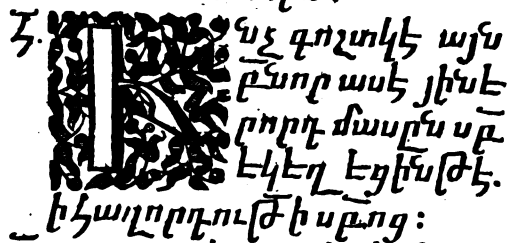 Է. Ինչ գոշտկէ այն
ընոր ասէ յինէ
րորդ մասըն սբ
էկեղէցինթէ.
ի հաղորդութի սբոց: